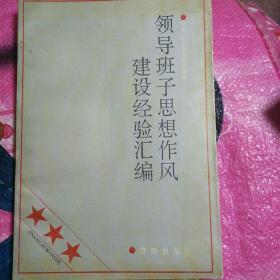 领导班子思想作风
建设经验汇编
济南出版社